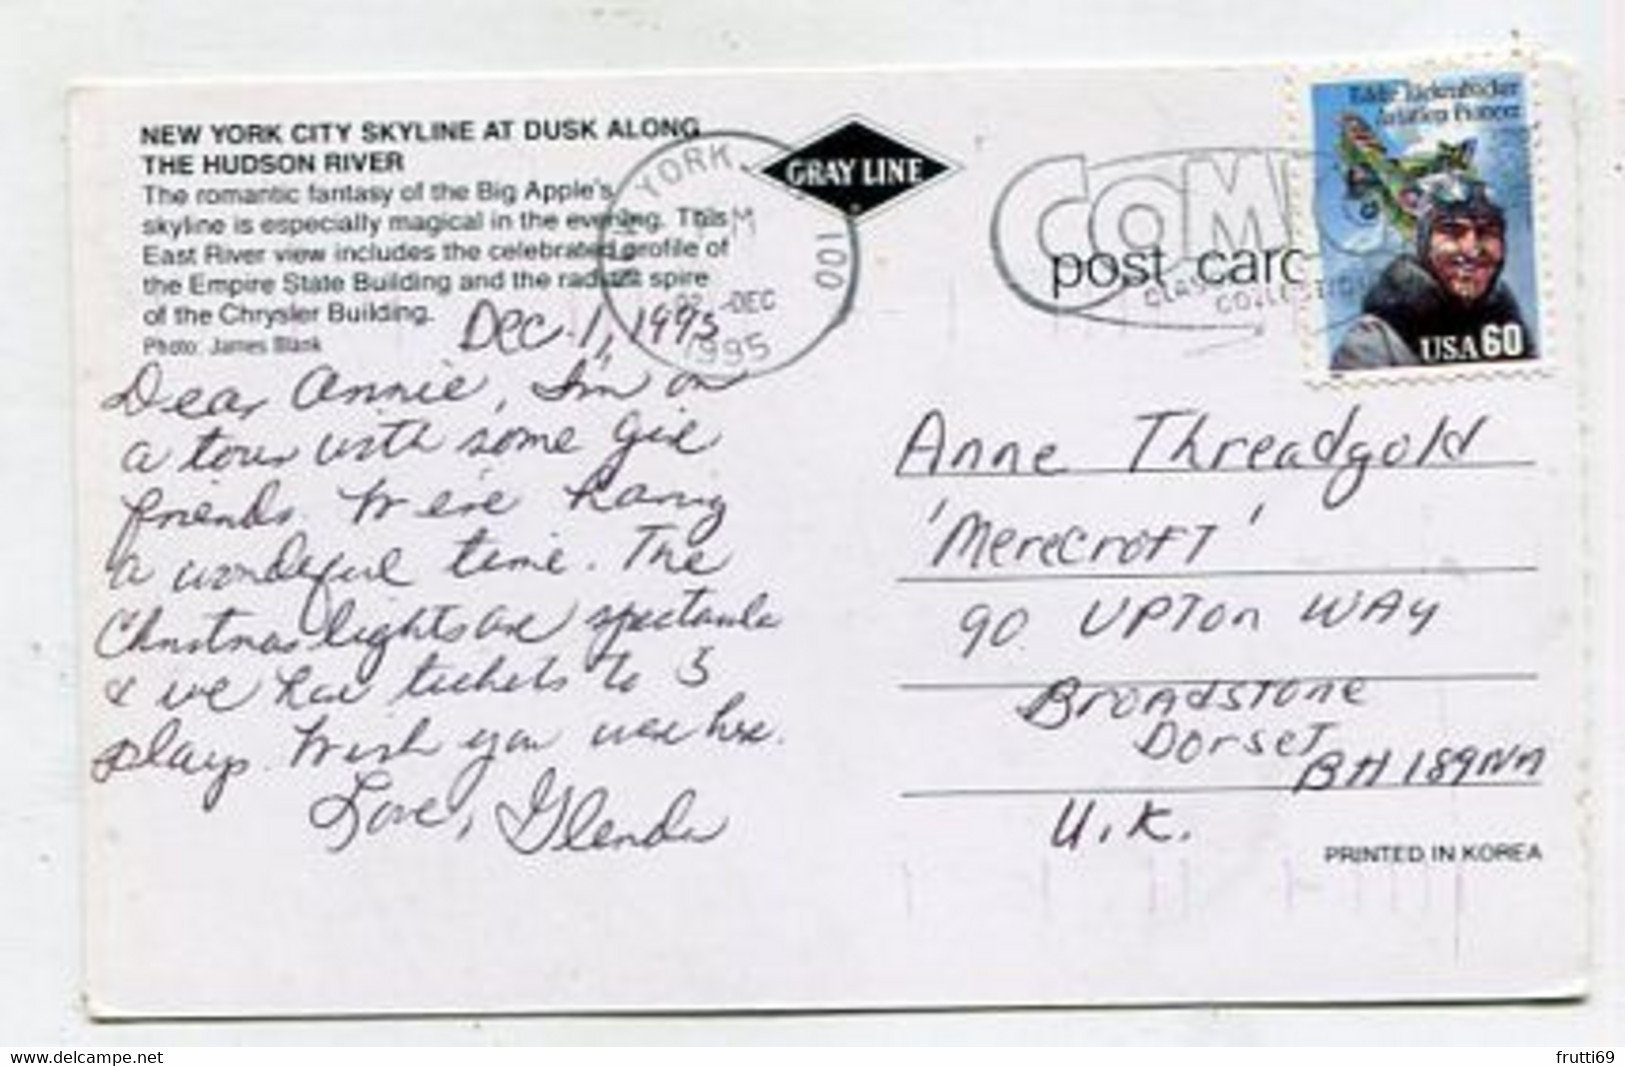 NEW YORK CITY SKYLINE AT DUSK ALONG
THE HUDSON RIVER
The romantic fantasy of the Big Apple's
skyline is especially magical in the evening. This
East River view includes the celebrated profile of
the Empire State Building and the radiant spire
of the Chrysler Building.
Photo: James Blank
GRAY LINE
YORK
100
02 DEC
1995
post card
COMIC
CLASS
COLLECTION
Eddie Rickenbacker
Aviation Pioneer
USA 60
Dec. 1, 1995
Dear Annie, I'm on
a tour with some girl
friends. We're having
a wonderful time. The
Christmas lights are spectacular
& we have tickets to 3
plays. Wish you were here.
Love, Glenda
Anne Threadgold
'Merecroft'
90 Upton Way
Broadstone
Dorset
BH 189NN
U.K.
PRINTED IN KOREA
frutti69
www.delcampe.net